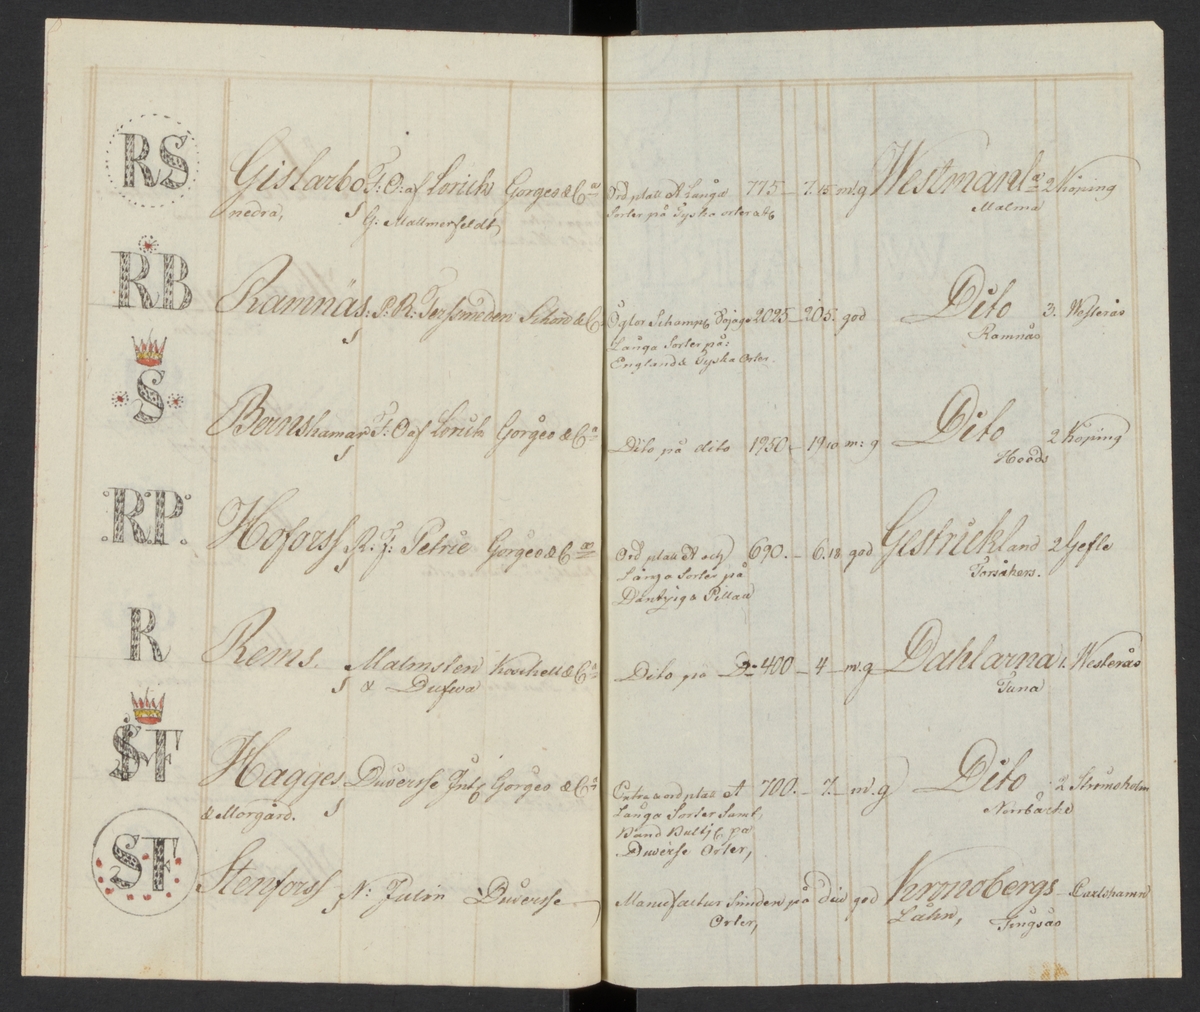 RS Gislarbo T: O: af Lorichs Gorges & C:a Ord platt Långa 775 7.15 m: g Westmanl:d 2 Köping
nedra, G. Mallmerfeldt, Sorter på Tyska orter Malma
RB Ramnäs: P. R: Tersmeden Schön & C: Öglor Schamp 2025 20.5. god Dito 3. Westerås
Långa Sorter på: Ramnäs
England & Tyska Orter.
S Bernshamar T: O af Lorichs Gorges & C:a Dito på dito 1950 19.10 m: g Dito 2 Köping
Heeds
RP. Hoforss R: F: Petrie Gorges & C:o Ord platt och 690. 6.18 god Gestrickland 2 Gefle
Långa Sorter på Torsåkers.
Dantzig & Pillau
R Rems. Malmsten & C:o Dito på D:o 400 4 m. g Dahlarna 1. Westerås
& Dufwa Tuna
SF Hagges Duverse Int: Gorges & C:o Extra & ord platt 700. 7. m. g Dito 2 Strömsholm
& Morgård. Långa Sorter Saml, Norrbärke
Band på
Duverse Orter,
SF Stenforss N: Julin Duverse Manufactur på god Kronobergs Carlshamn
Orter, Lähn, Tingsås